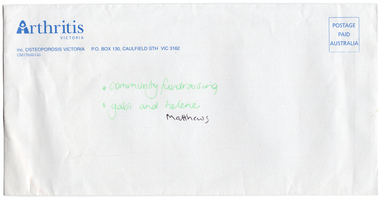 Arthritis
VICTORIA
Inc. OSTEOPOROSIS VICTORIA P.O. BOX 130, CAULFIELD STH VIC 3162
POSTAGE
PAID
AUSTRALIA
• community fundraising
• yabi and helene
Matthews